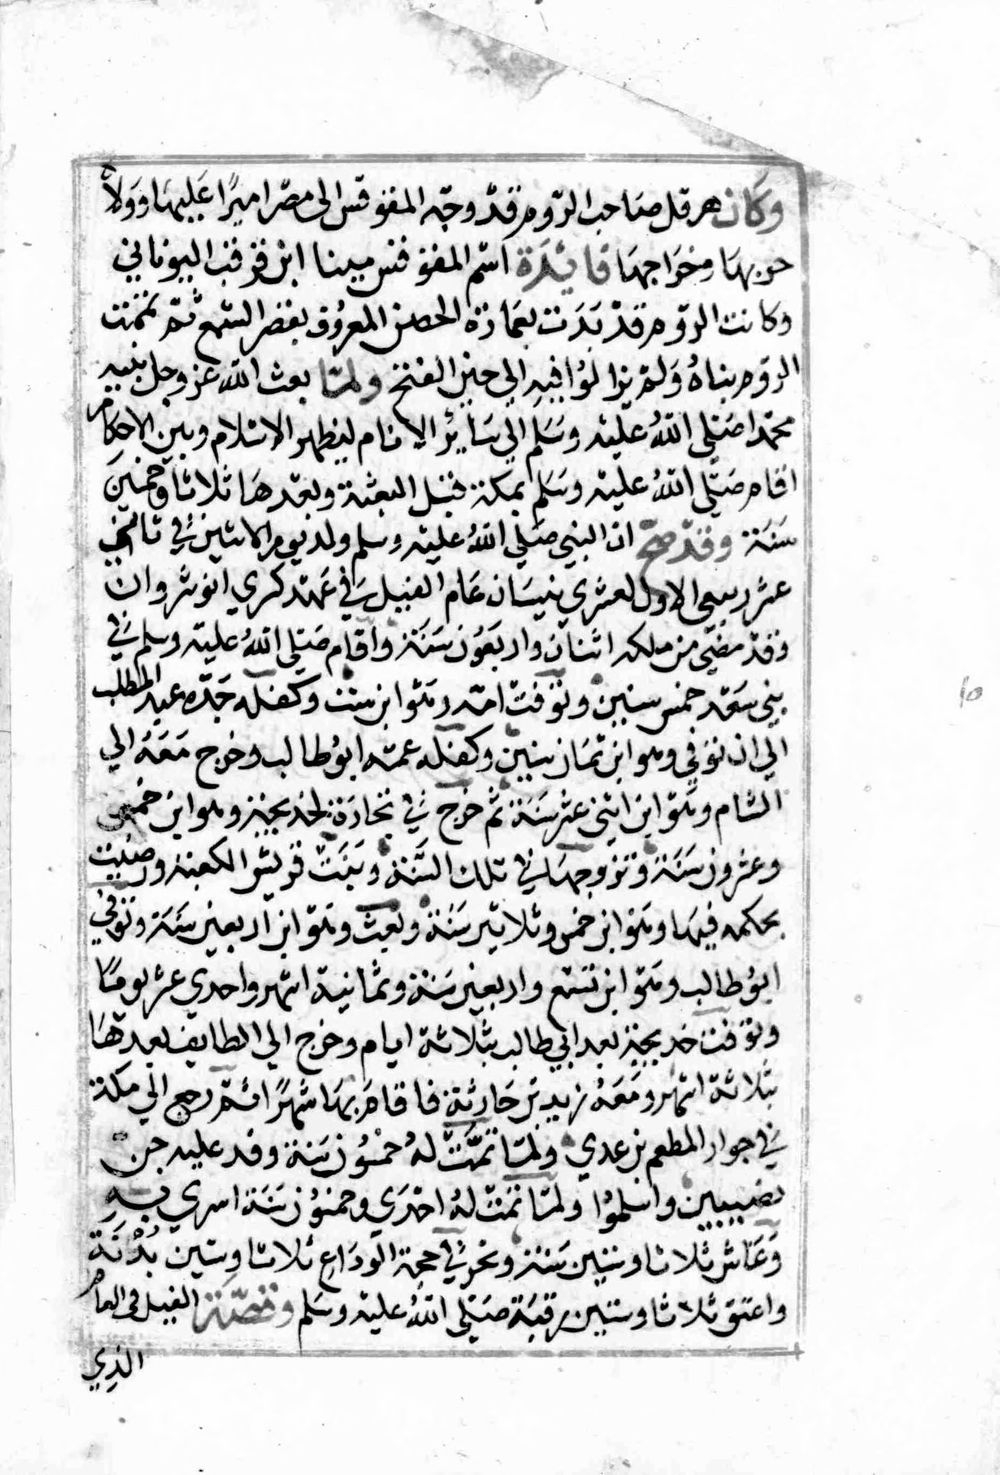 وكان هرقل صاحب الروم قد وجه المقوقس الى مصر اميرًا عليها وولاه
حربها وخراجها فايدة اسم المقوقس مينا ابن قرقب اليوناني
وكانت الروم قد بدت بعمارة الحصن المعروف بقصر الشمع ثم تممت
الروم بناه ولم يزالوا فيه الي حين الفتح ولما بعث الله عز وجل نبيه
محمدا صلى الله عليه وسلم الي سائر الانام ليظهر الاسلام وبين الاحكام
اقام صلى الله عليه وسلم بمكة قبل البعثة وبعدها ثلاثا وخمسين
سنة وقد صح ان النبي صلي الله عليه وسلم ولد يوم الاثنين في ثاني
عشر ربيع الاول لعشري نيسان عام الفيل في عهد كسري انوشروان
وقد مضي من ملكه اثنان واربعون سنة واقام صلي الله عليه وسلم في
بني سعد خمس سنين وتوفت امه وهو ابن ست وكفله جده عبد المطلب
الي ان توفي وهو ابن ثمان سنين وكفله عمه ابو طالب وخرج معه الي
الشام وهو ابن اثني عشر سنة ثم خرج في تجارة لخديجة وهو ابن خمس
وعشرون سنة وتزوجها في تلك السنة وبنت قريش الكعبة ورضيت
بحكمه فيها وهو ابن خمس وثلاثين سنة وبعث وهو ابن اربعين سنة وتوفي
ابو طالب وهو ابن تسع واربعين سنة وثمانية اشهر واحدي عشر يومًا
وتوفت خديجة بعد ابي طالب بثلاثة ايام وخرج الي الطايف بعدها
بثلاثة اشهر ومعه زيد بن حارثة فاقام بها شهرًا ثم رجع الي مكة
في جوار المطعم بن عدي ولما تمت له خمسون سنة وفد عليه جن
نصيبين واسلموا ولما تمت له احدي وخمسون سنة اسري به
وعاش ثلاثا وستين سنة ونحر في حجة الوداع ثلاثا وستين بدنة
واعتق ثلاثا وستين رقبة صلي الله عليه وسلم وقصة الفيل في العام
الذي
١٥